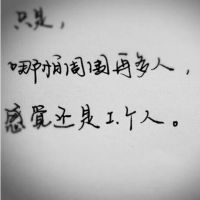 只是，
哪怕周围再多人，
感觉还是1.个人。